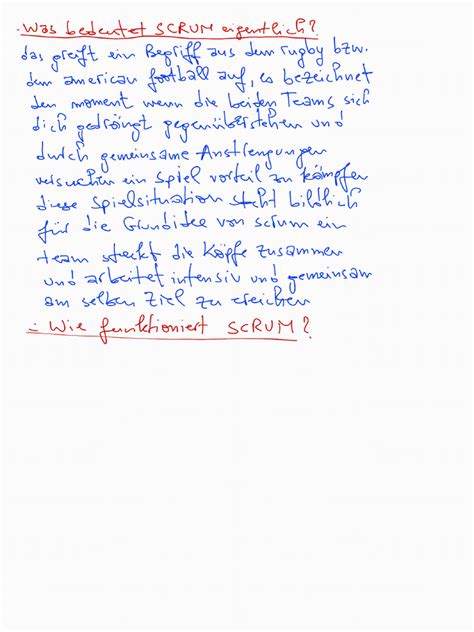 . Was bedeutet SCRUM eigentlich?
das greift ein Begriff aus dem rugby bzw.
dem american football auf, es bezeichnet
den moment wenn die beiden Teams sich
dich gedrängt gegenüberstehen und
durch gemeinsame Anstrengungen
versuchen ein Spiel vorteil zu kämpfen
diese Spielsituation steht bildlich
für die Grundidee von scrum ein
team steckt die Köpfe zusammen
und arbeitet intensiv und gemeinsam
am selben Ziel zu ereichen
- Wie funktioniert SCRUM?